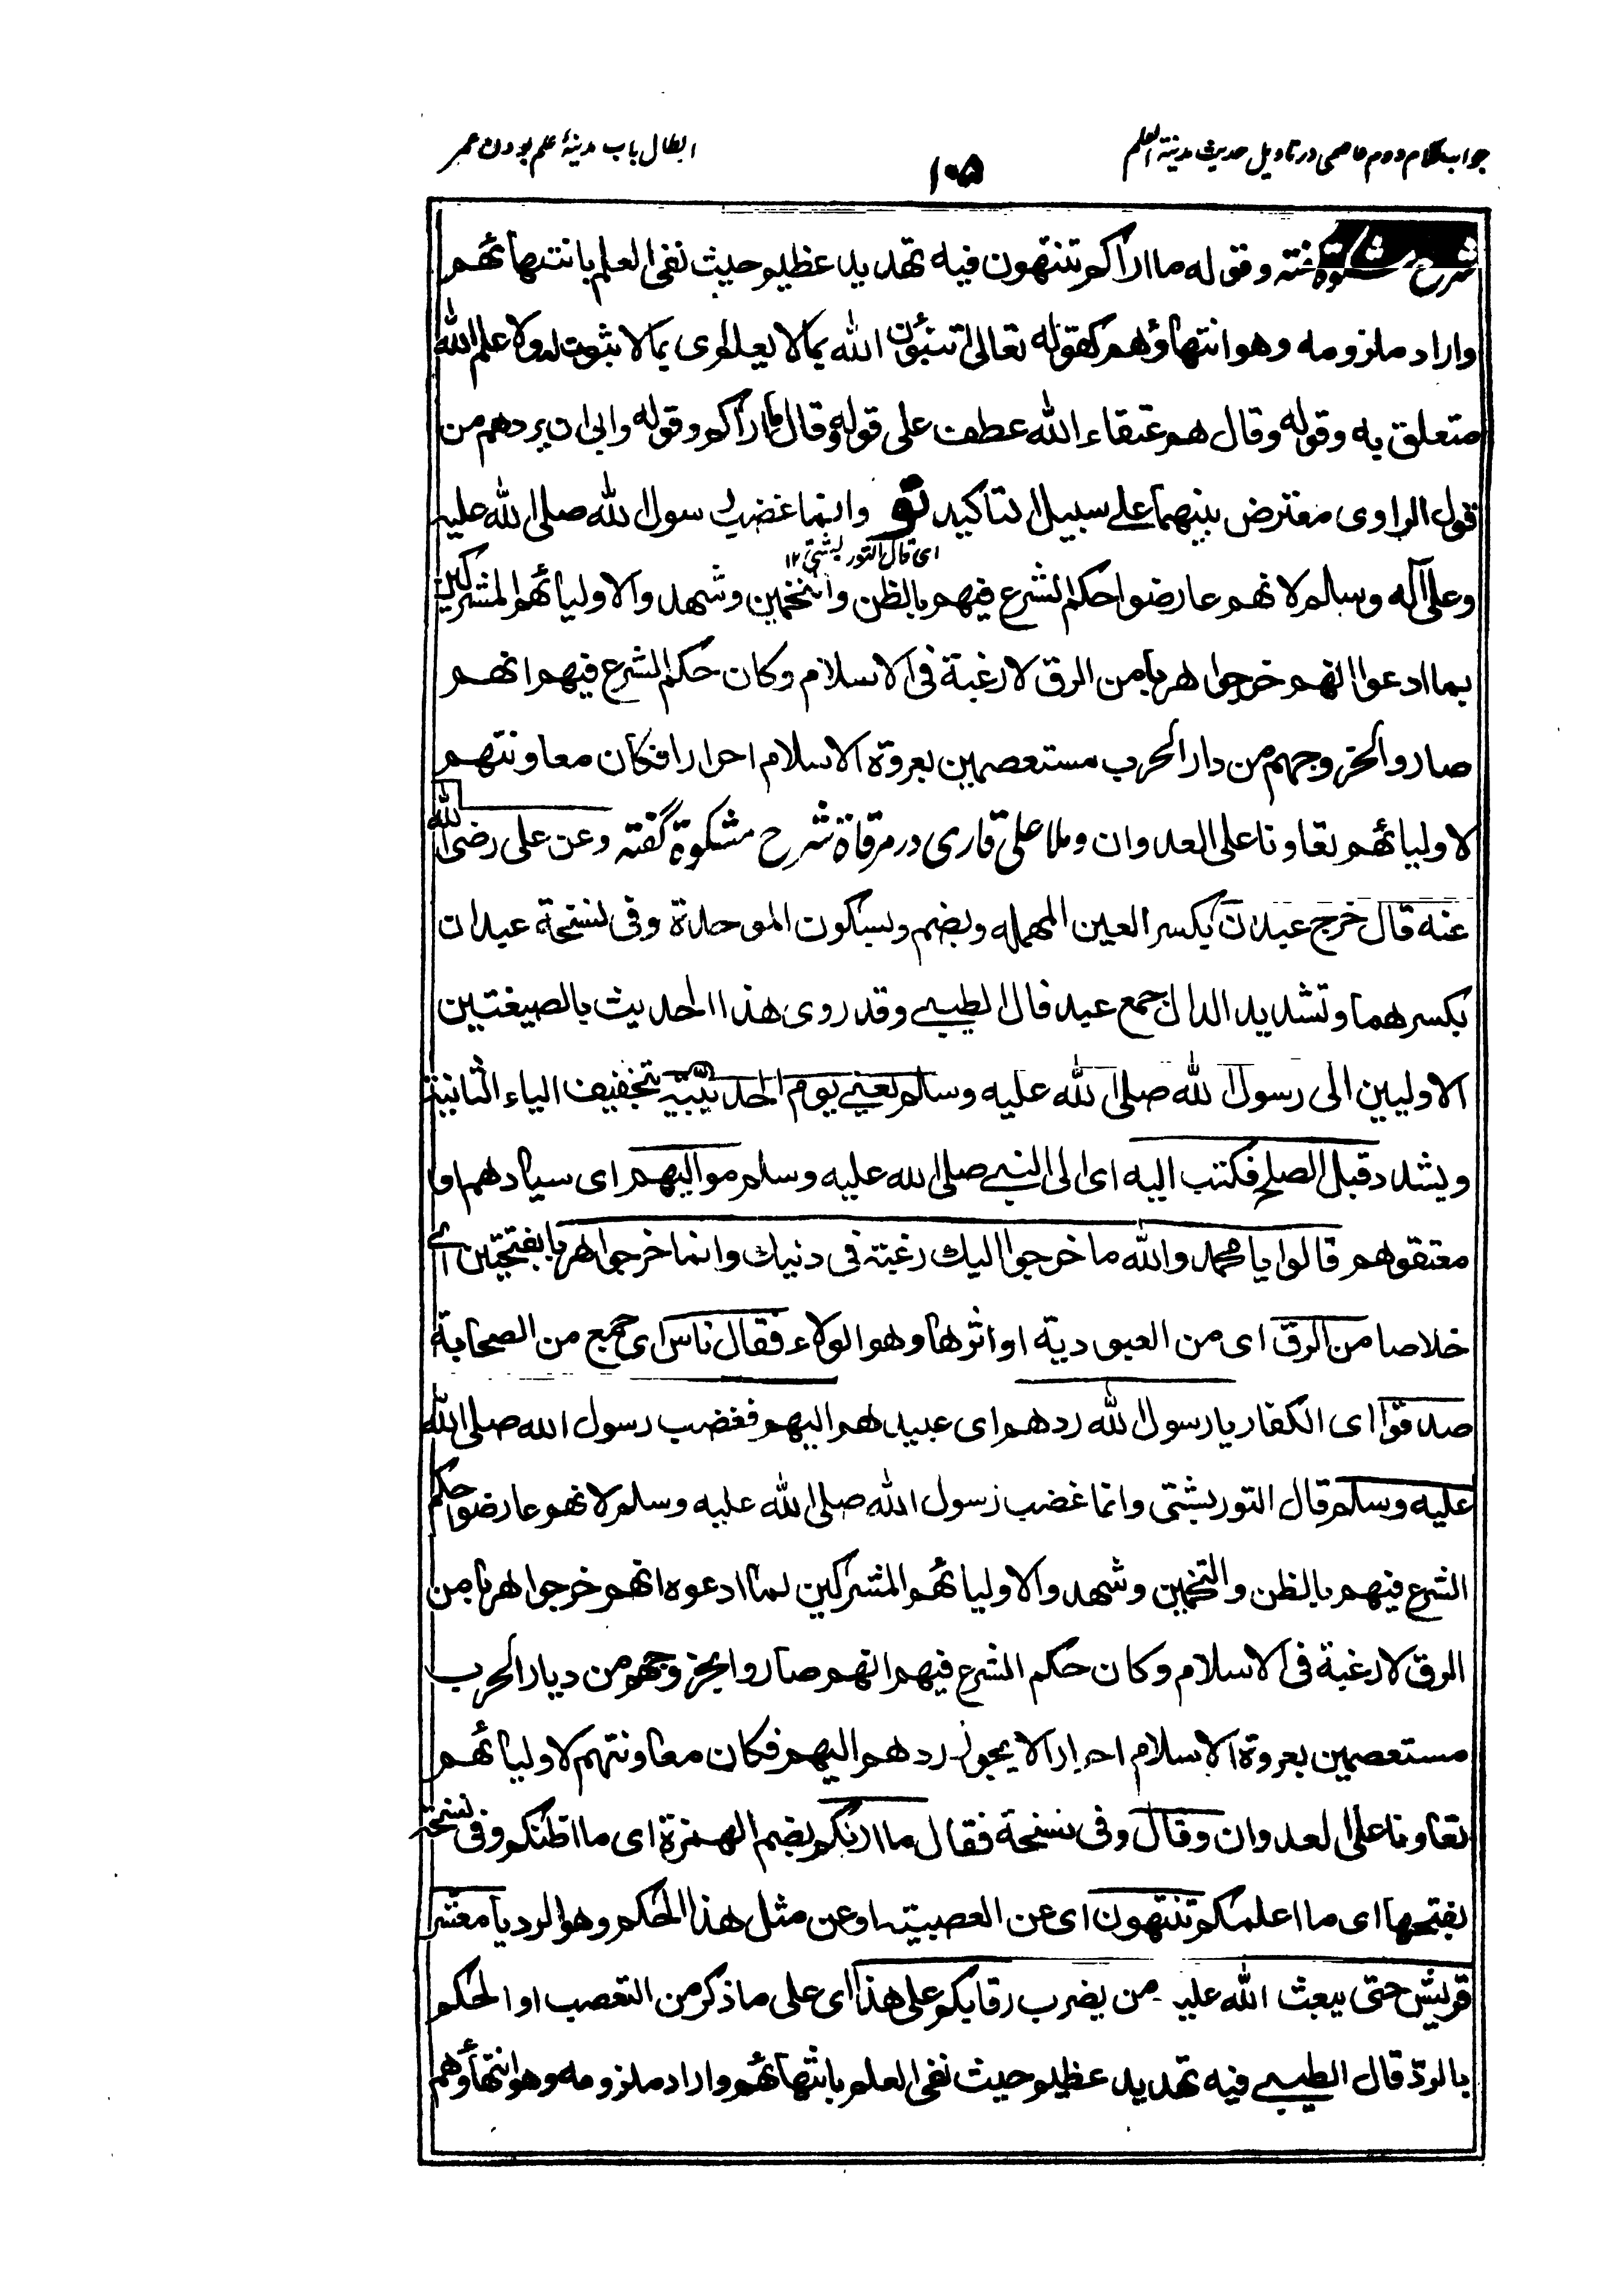 جواب کلام دوم عاصمی در تاویل حدیث مدینة العلم
۱۰۵
ابطال باب مدینهٔ علم بودن عمر
شرح مشکوة گفته وقوله ما اراكم تنتهون فيه تهديد عظيم حيث نفى العلم بانتهائهم
واراد ملزومه وهو انتهاؤهم كقوله تعالى اتنبئون الله بما لا يعلم اى بما لا ثبوت له ولا علم الله
متعلق به وقوله وقال هم عتقاء الله عطف على قوله وقال ما اراكم وقوله وابى ان يردهم من
قول الراوى معترض بينهما على سبيل التاكيد تو وانما غضب رسول الله صلى الله عليه
اى قال التوربشتى ۱۲
وعلى آله وسلم لانهم عارضوا حكم الشرع فيهم بالظن والتخمين وشهدوا لاوليائهم المشركين
بما ادعوا انهم خرجوا هربا من الرق لا رغبة فى الاسلام وكان حكم الشرع فيهم انهم
صاروا لخروجهم من دار الحرب مستعصمين بعروة الاسلام احرارا فكان معاونتهم
لاوليائهم تعاونا على العدوان وملا علی قاری در مرقاة شرح مشکوة گفته وعن على رضى الله
عنه قال خرج عبدان بكسر العين المهمله وبضم وسكون الموحدة وفى نسخة عبدان
بكسرهما وتشديد الدال جمع عبد قال الطيبي وقد روى هذا الحديث بالصيغتين
الاوليين الى رسول الله صلى الله عليه وسلم يعني يوم الحديبية بتخفيف الياء الثانية
ويشدد قبل الصلح فكتب اليه اى الى النبي صلى الله عليه وسلم مواليهم اى سيادهم او
معتقوهم قالوا يا محمد والله ما خرجوا اليك رغبة فى دينك وانما خرجوا هربا بفتحتين اي
خلاصا من الرق اى من العبودية او اثرها وهو الولاء فقال ناس اى جمع من الصحابة
صدقوا اى الكفار يا رسول الله ردهم اى عبيدهم اليهم فغضب رسول الله صلى الله
عليه وسلم قال التوربشتى وانما غضب رسول الله صلى الله عليه وسلم لانهم عارضوا حكم
الشرع فيهم بالظن والتخمين وشهدوا لاوليائهم المشركين لما ادعوه انهم خرجوا هربا من
الرق لا رغبة فى الاسلام وكان حكم الشرع فيهم انهم صاروا بخروجهم من ديار الحرب
مستعصمين بعروة الاسلام احرارا لا يجوز ردهم اليهم فكان معاونتهم لاوليائهم
تعاونا على العدوان وقال وفى نسخة فقال ما اريكم بضم الهمزة اى ما اظنكم وفى نسخة
بفتحها اى ما اعلمكم تنتهون اى عن العصبية او عن مثل هذا الحكم وهو الرد يا معشر
قريش حتى يبعث الله عليكم من يضرب رقابكم على هذا اى على ما ذكر من التعصب او الحكم
بالرد قال الطيبي فيه تهديد عظيم حيث نفى العلم بانتهائهم واراد ملزومه وهو انتهاؤهم